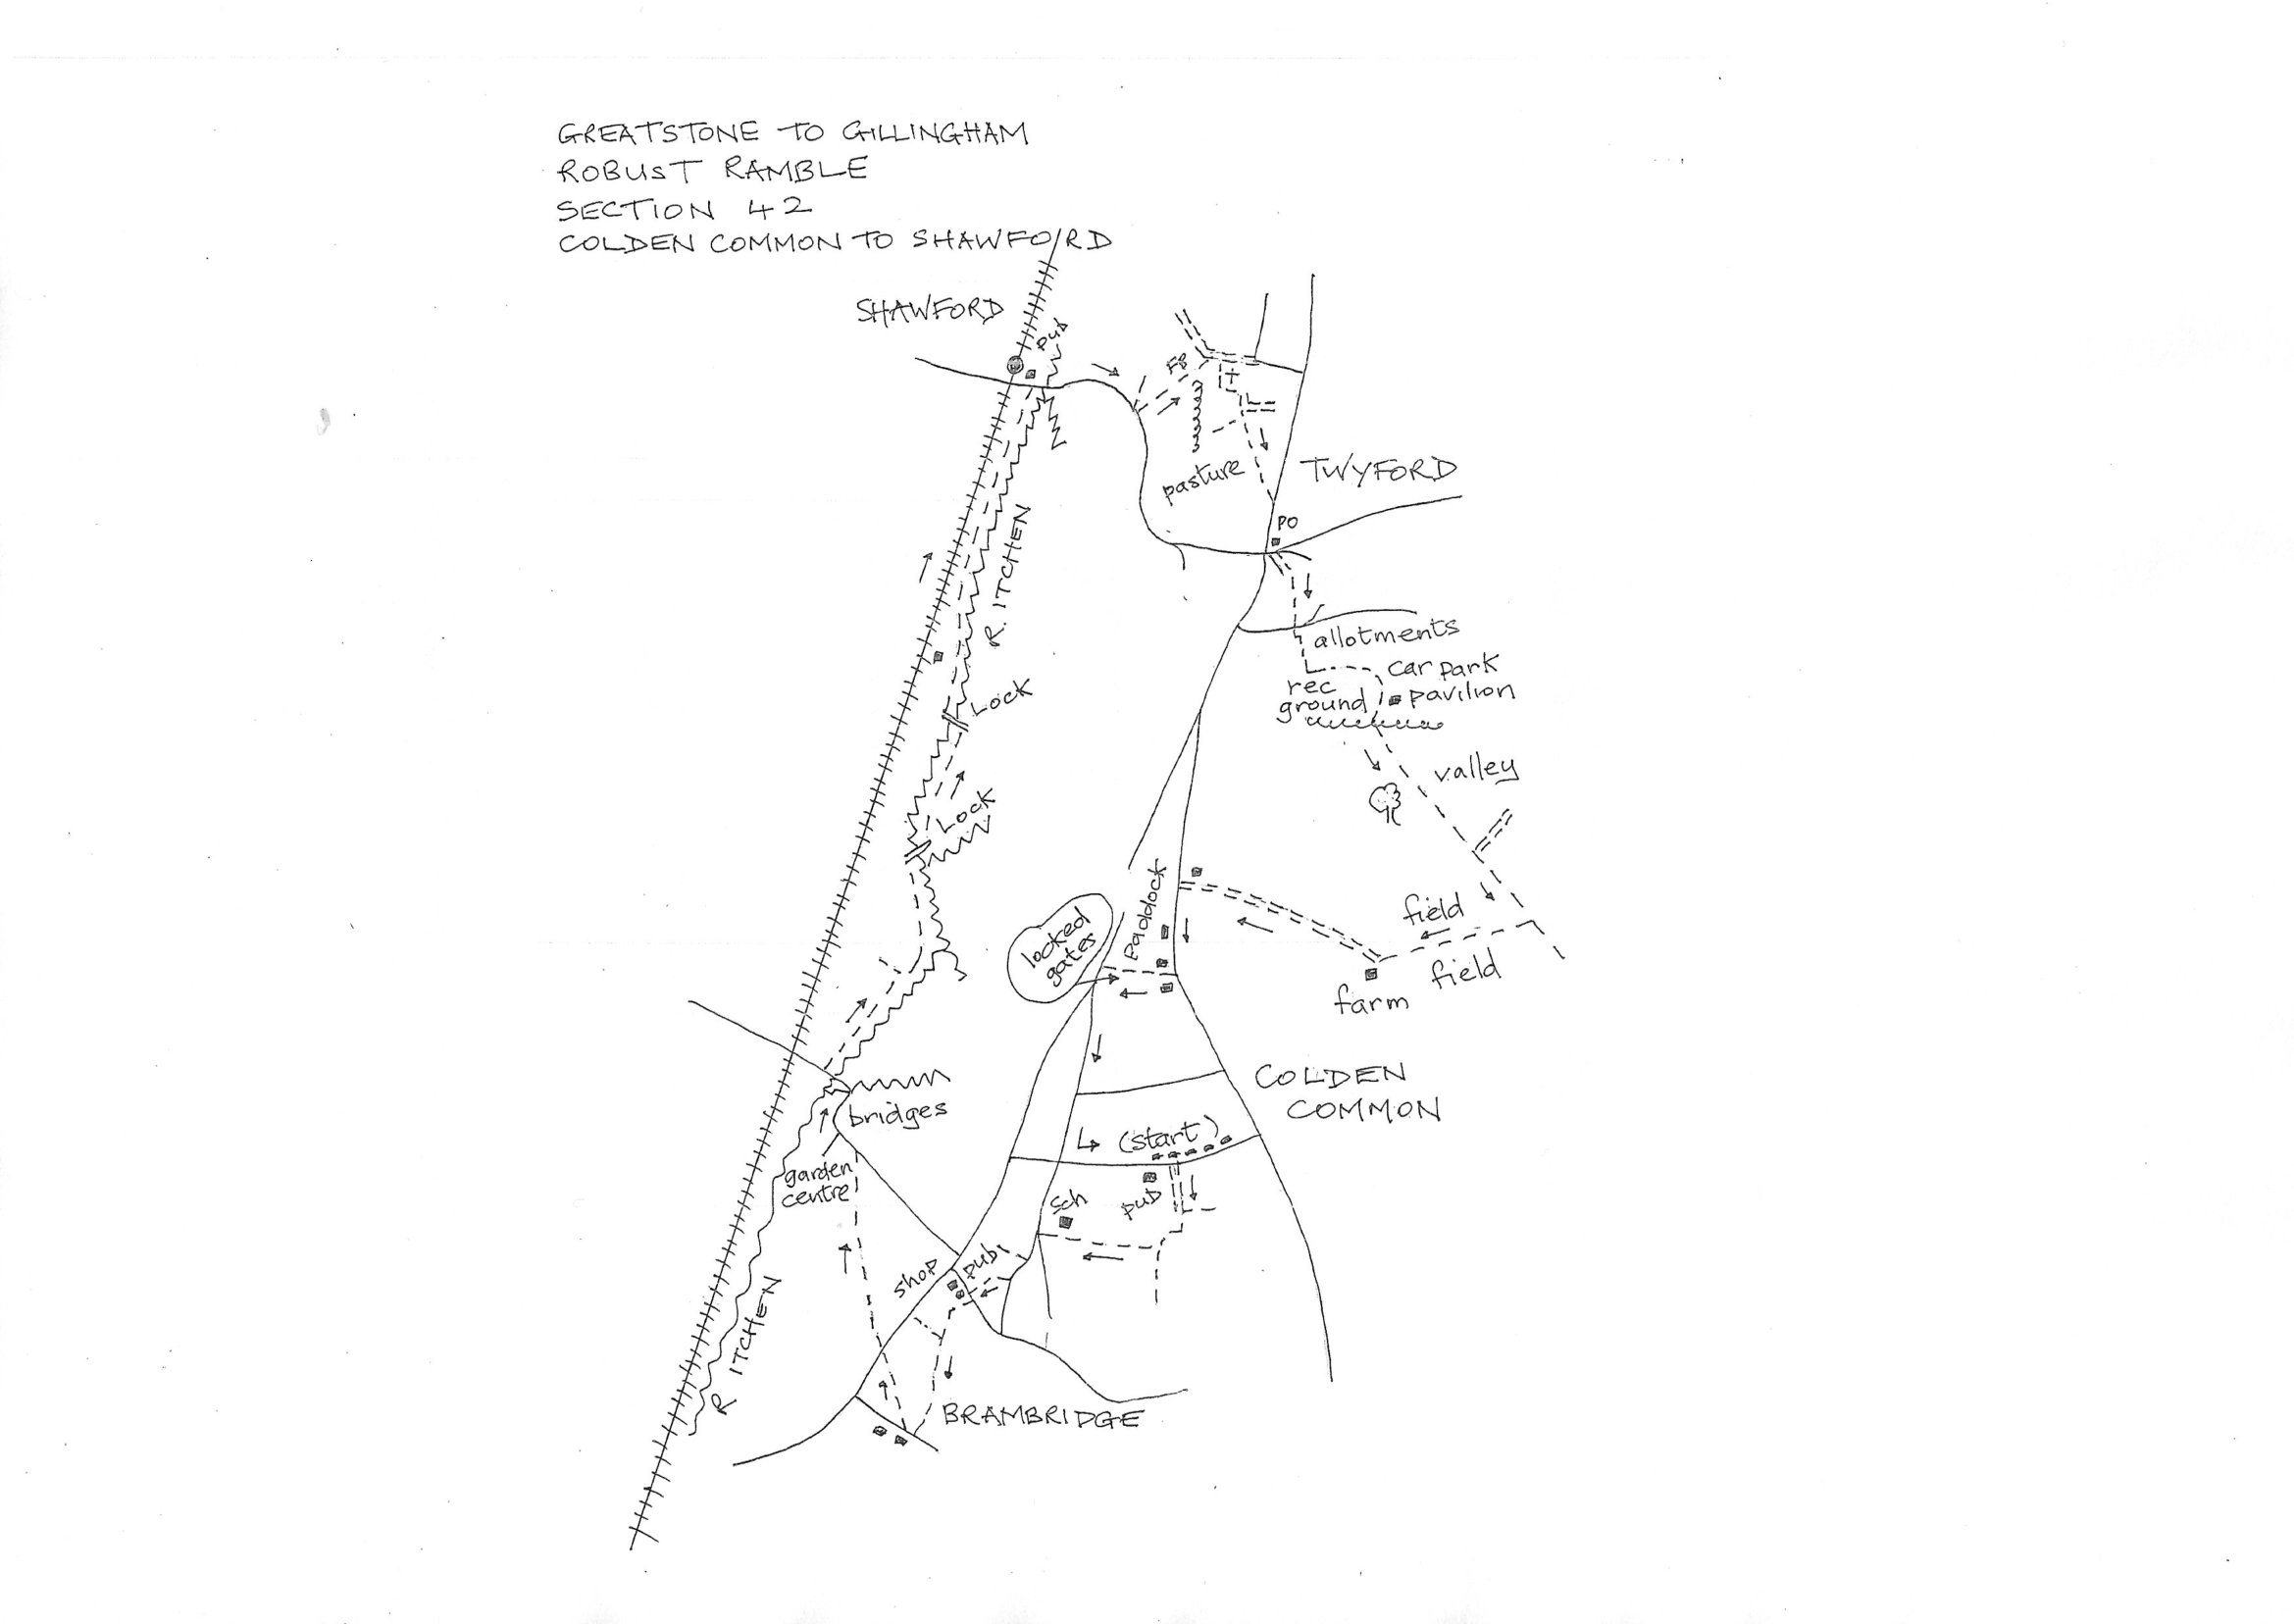 GREATSTONE TO GILLINGHAM
ROBUST RAMBLE
SECTION 42
COLDEN COMMON TO SHAWFORD
SHAWFORD
pub
FB
pasture
TWYFORD
PO
R. ITCHEN
allotments
car park
rec
ground
pavilion
Lock
valley
Lock
Paddock
field
locked
gates
field
farm
COLDEN
COMMON
bridges
(start)
garden
centre
Sch
pub
shop
pub
R ITCHEN
BRAMBRIDGE